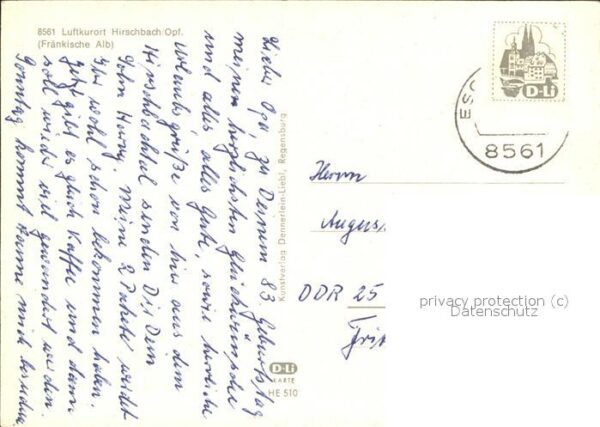 8561 Luftkurort Hirschbach/Opf.
(Fränkische Alb)
Lieber Opa zu Deinem 83 Geburtstag
meinen herzlichsten Glückwunsch
und alles, alles Gute, sowie herzliche
Urlaubsgrüße von hier aus dem
Hirschbachtal senden Dir Dein
Sohn Harry. Meine 2 Pakete wirdst
Du wohl schon bekommen haben.
Jetzt gibt es gleich Kaffee und dann
soll wieder viel gewandert werden.
Sonntag kommt Hanne mich besuchen
Kunstverlag Dennerlein-Liebl, Regensburg
D-Li
KARTE
HE 510
D-Li
ESC
8561
Herrn
August
DDR 25
privacy protection (c)
Datenschutz